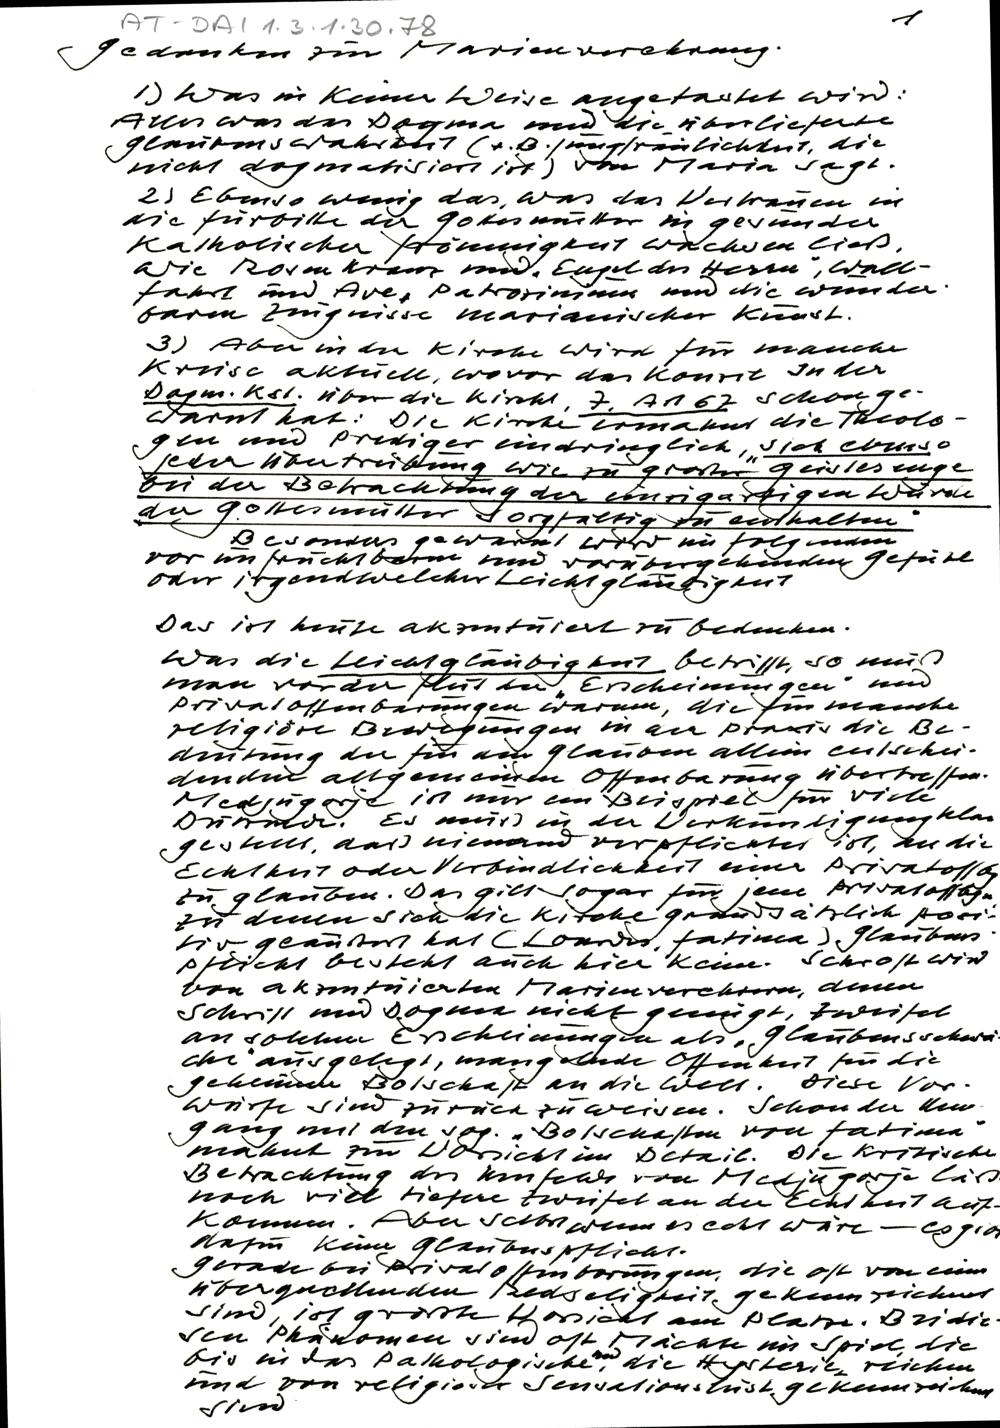 AT-DAI 1.3.1.30.78
1
Gedanken zur Marienverehrung.
1) Was in keiner Weise angetastet wird:
Alles was das Dogma und die überlieferte
Glaubenswahrheit (z.B. Jungfräulichkeit, die
nicht dogmatisiert ist) von Maria sagt.
2) Ebenso wenig das, was das Vertrauen in
die Fürbitte der Gottesmutter in gesunder
Katholischer Frömmigkeit wachsen ließ,
wie Rosenkranz und "Engel des Herrn", Wall-
fahrt und Ave, Patrozinium und die wunder-
baren Zeugnisse marianischer Kunst.
3) Aber in der Kirche wird für manche
Kreise aktuell, wovor das Konzil in der
Dogm. Kst. über die Kirche, 7, Art 67 schon ge-
warnt hat: Die Kirche ermahnt die Theolo-
gen und Prediger eindringlich, "sich ebenso
jeder Übertreibung wie zu großer Geistesenge
bei der Betrachtung der einzigartigen Würde
der Gottesmutter sorgfältig zu enthalten"
Besonders gewarnt wird im folgenden
vor unfruchtbarem und vorübergehendem Gefühl
oder irgendwelcher Leichtgläubigkeit
Das ist heute akzentuiert zu bedenken.
Was die Leichtgläubigkeit betrifft, so muß
man vor der Flut der "Erscheinungen" und
Privatoffenbarungen warnen, die für manche
religiöse Bewegungen in der Praxis die Be-
deutung der für den Glauben allein entschei-
denden allgemeinen Offenbarung übertreffen.
Medjugorje ist nur ein Beispiel für viele
Dutzende. Es muß in der Verkündigung klar
gestellt, daß niemand verpflichtet ist, an die
Echtheit oder Verbindlichkeit einer Privatoffbg
zu glauben. Das gilt sogar für jene Privatoffbgn,
zu denen sich die Kirche grundsätzlich posi-
tiv geäußert hat (Lourdes, Fatima). Glaubens-
pflicht besteht auch hier keine. Schroff wird
von akzentuierten Marienverehrern, denen
Schrift und Dogma nicht genügt, Zweifel
an solchen Erscheinungen als "Glaubensschwä-
che" ausgelegt, mangelnde Offenheit für die
geheime Botschaft an die Welt. Diese Vor-
würfe sind zurückzuweisen. Schon der Um-
gang mit den sog. "Botschaften von Fatima"
mahnt zur Vorsicht im Detail. Die kritische
Betrachtung des Umfelds von Medjugorje läßt
noch viel tiefere Zweifel an der Echtheit auf-
kommen. Aber selbst wenn es echt wäre - es gibt
dafür keine Glaubenspflicht.
Gerade bei Privatoffenbarungen, die oft von einer
überquellenden Redseligkeit gekennzeichnet
sind, ist größte Vorsicht am Platze. Bei die-
sen Phänomen sind oft Mächte im Spiel, die
bis in das Pathologische und die Hysterie reichen
und von religiöser Sensationslust gekennzeichnet
sind